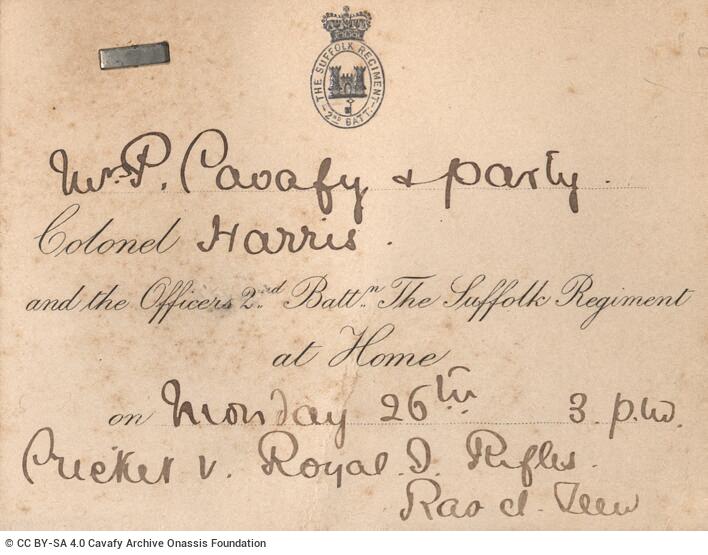 THE SUFFOLK REGIMENT
2ND BATT.
Mrs P. Cavafy & party.
Colonel Harris.
and the Officers 2nd Battn. The Suffolk Regiment
at Home
on Monday 26th 3. p.m.
Cricket v. Royal I. Rifles.
Ras el Teen
© CC BY-SA 4.0 Cavafy Archive Onassis Foundation